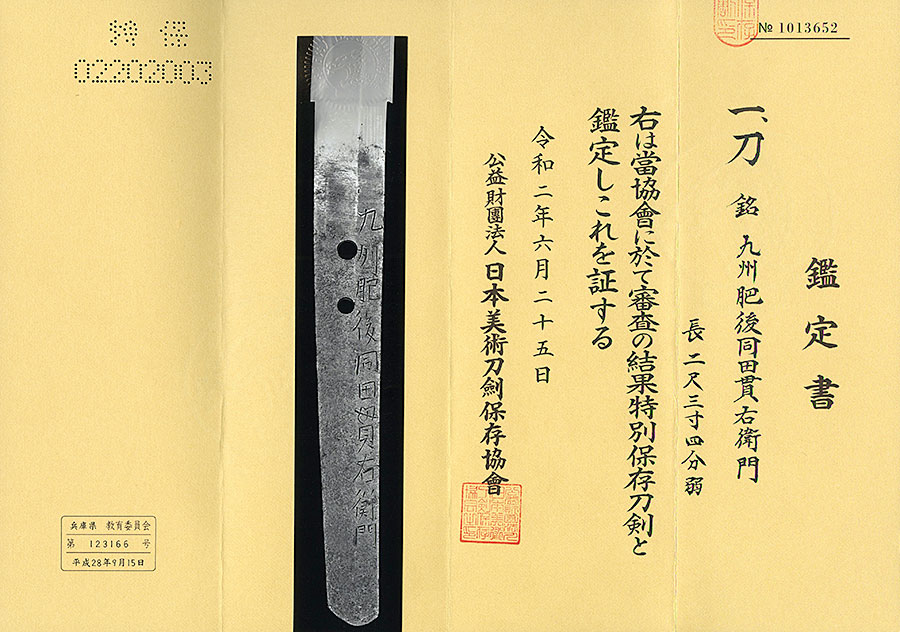 № 1013652
鑑定書
一、刀 銘 九州肥後同田貫右衛門
長 二尺三寸四分弱
右は當協會に於て審査の結果特別保存刀剣と
鑑定しこれを証する
令和二年六月二十五日
公益財團法人 日本美術刀劍保存協會
九州肥後同田貫右衛門
特保
02202003
兵庫県 教育委員会
第 123166 号
平成28年9月15日